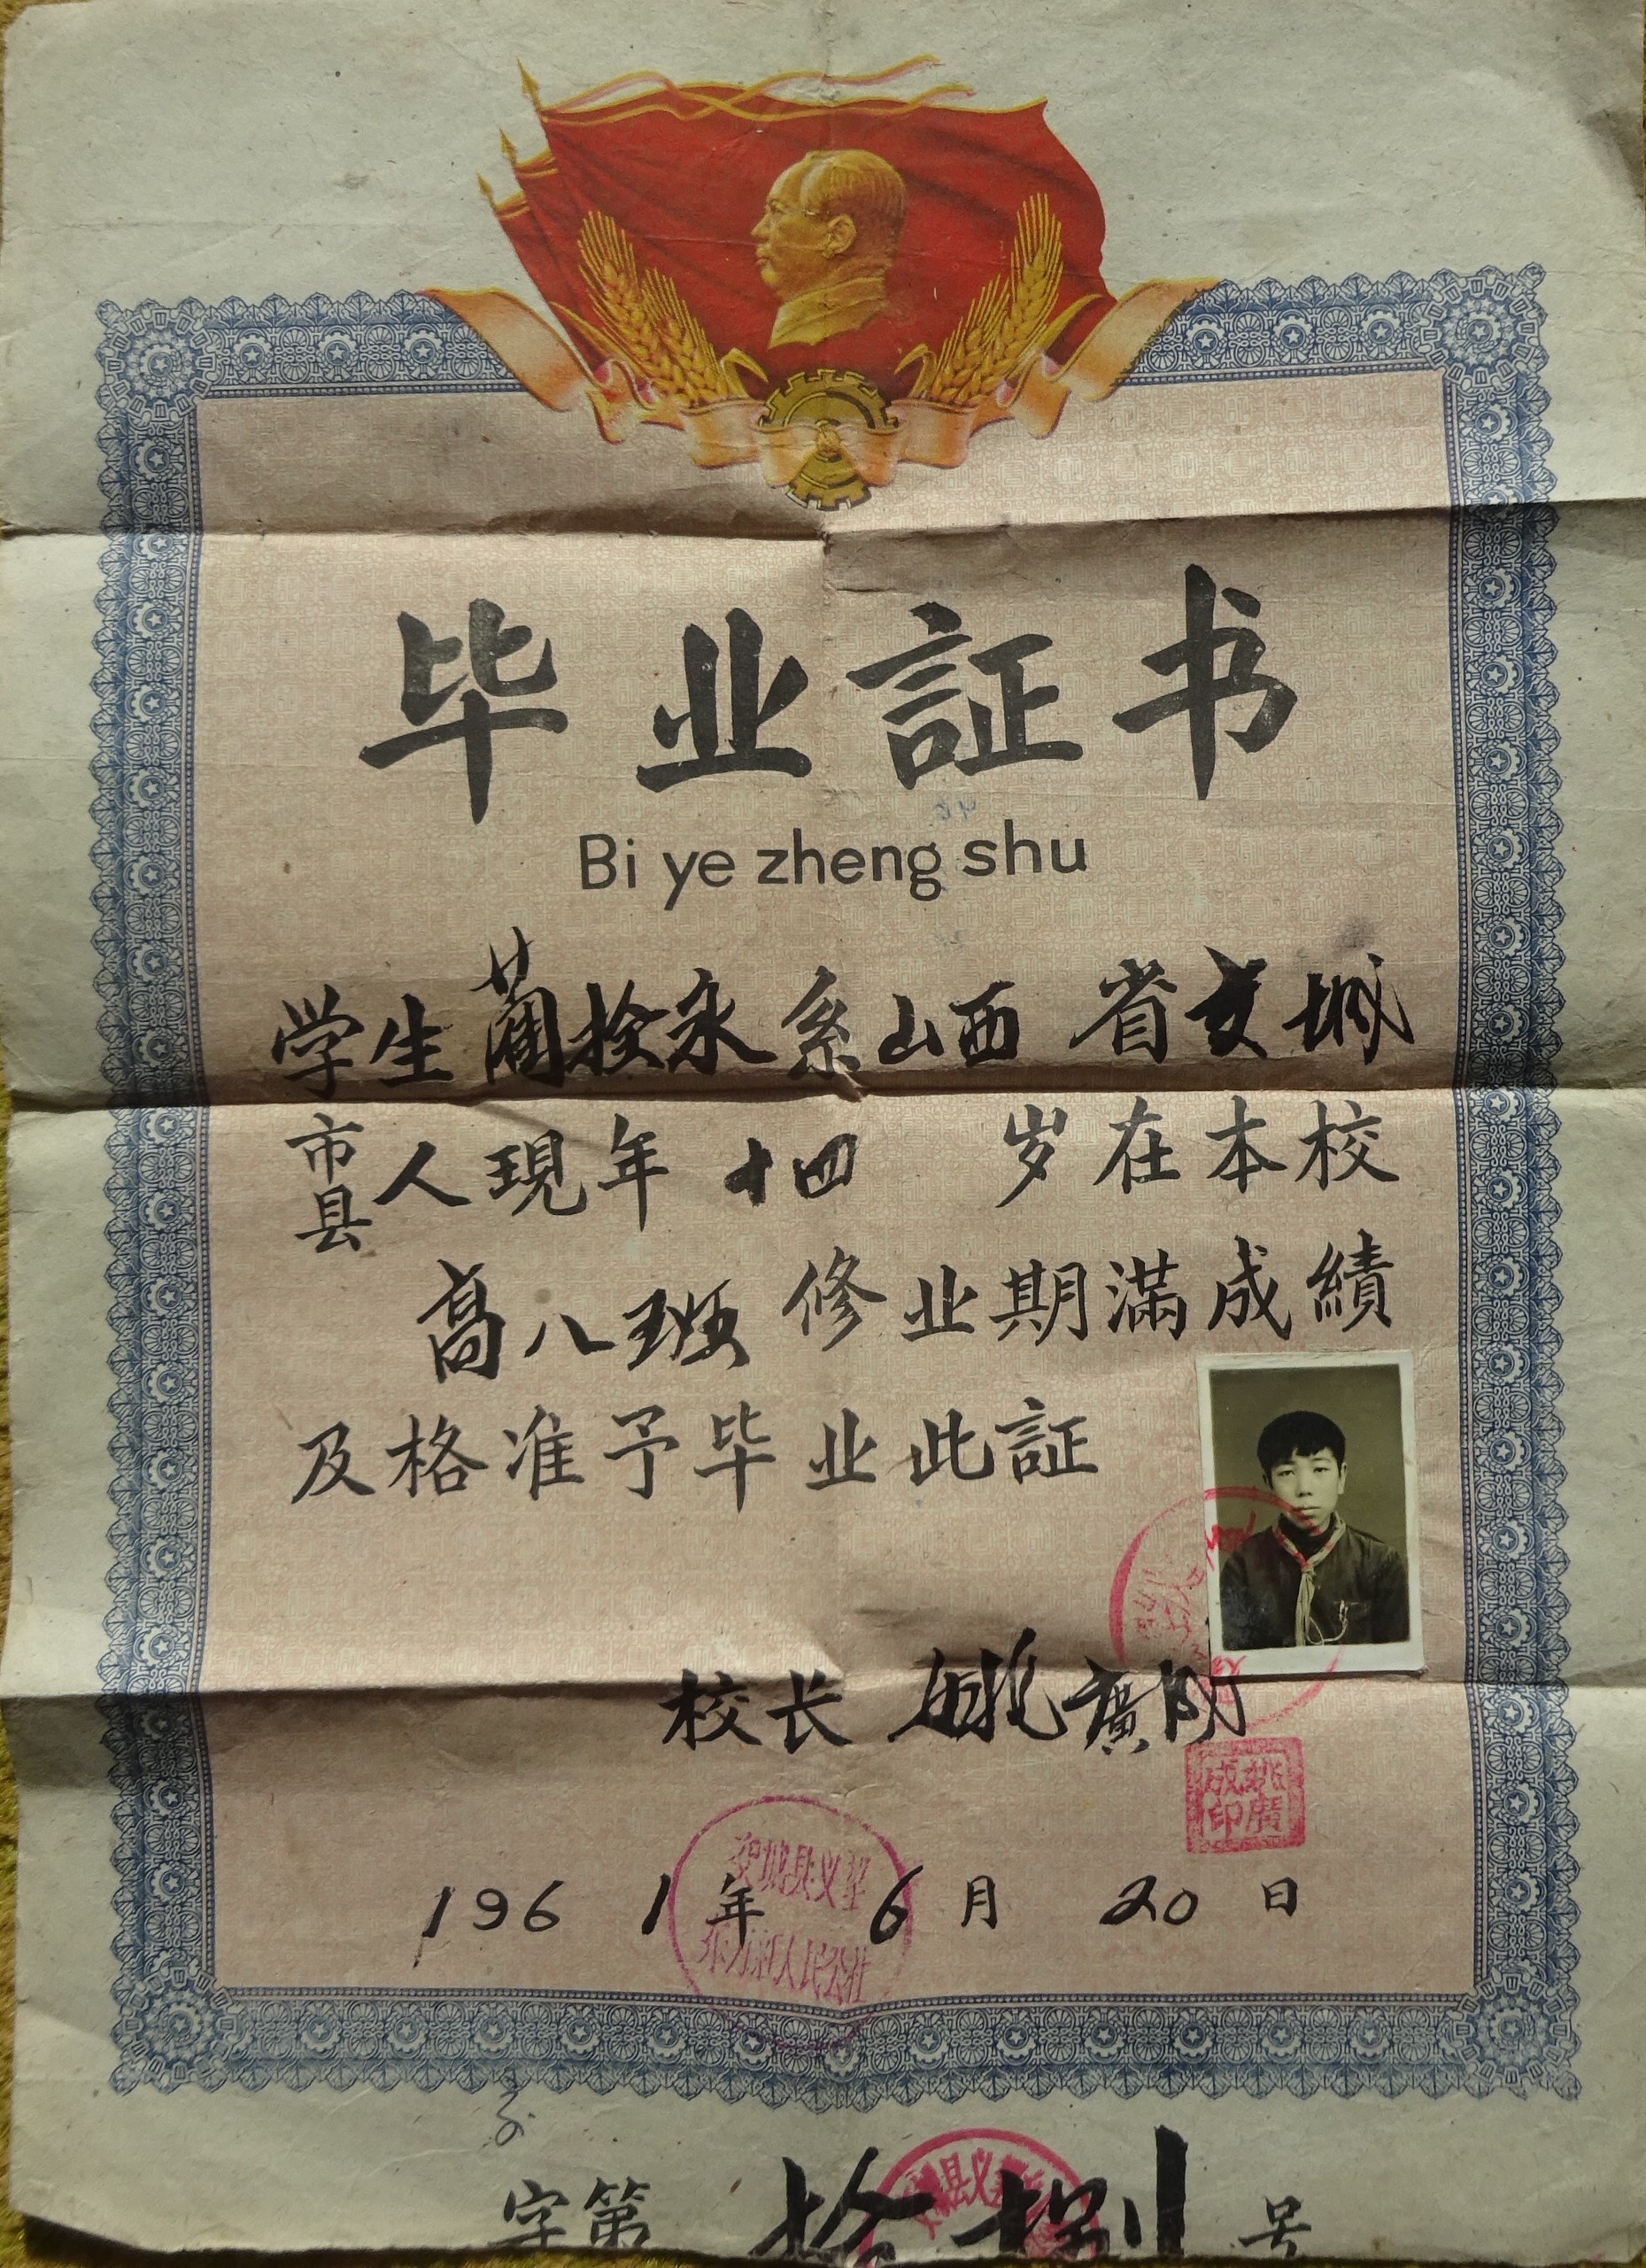 毕业証书
Bi ye zheng shu
学生蔺拴永系山西省文城
市县人現年十四岁在本校
高八班修业期满成績
及格准予毕业此証
校长 姚廣成
姚廣成印
1961年6月20日
人民公社
字第拾捌号